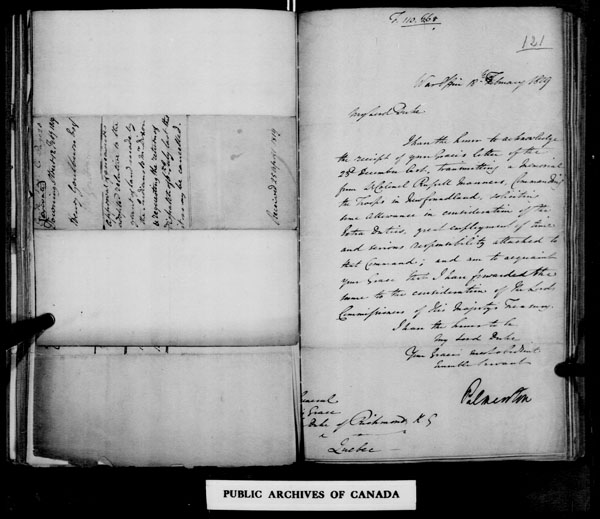 121
War Office 18th February 1819
My Lord Duke
I have the honor to acknowledge
the receipt of your Grace's letter of the
23d December last, transmitting a Memorial
from Lt Colonel Russell Manners, Commanding
the Troops in Newfoundland, soliciting
some allowance in consideration of the
Extra Duties, great employment of time
and serious responsibility attached to
that Command; and am to acquaint
your Grace that I have forwarded the
same to the consideration of the Lords
Commissioners of His Majesty's Treasury.
I have the honor to be
My Lord Duke
Your Grace's most obedient
humble Servant
Palmerston
General
Grace
Duke of Richmond, K G
Quebec
Downing
Henry Goulburn Esq
relative to the
made by
the
requesting the return of
may be cancelled.
Received 1819
PUBLIC ARCHIVES OF CANADA